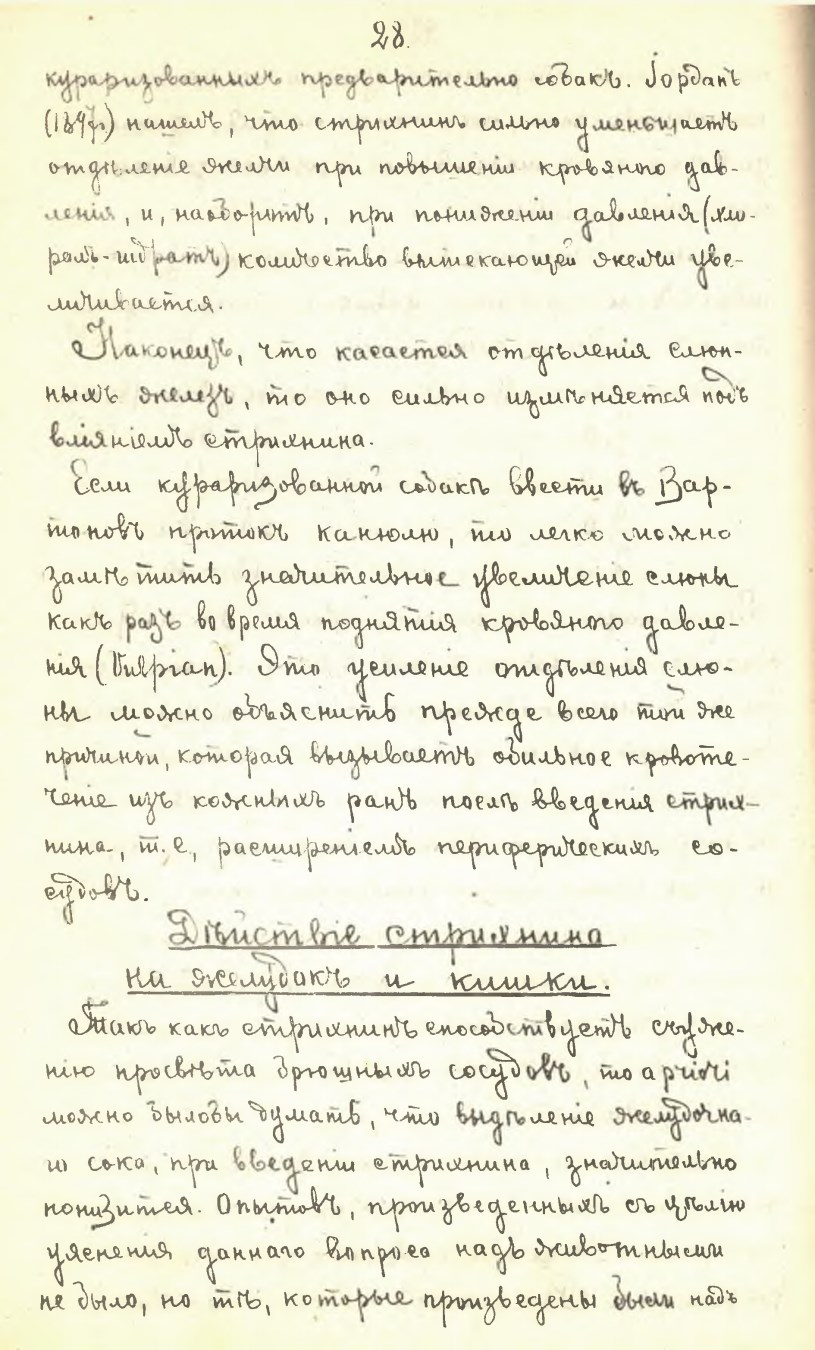 28.
кураризованныхъ предварительно собакъ. Jорданъ
нашелъ, что стрихнинъ сильно уменьшаетъ
отдѣленіе желчи при повышеніи кровяного дав-
ленія, и, наоборотъ, при пониженіи давленія (хло-
ралъ-гидратъ) количество вытекающей желчи уве-
личивается.
Наконецъ, что касается отдѣленія слюн-
ныхъ железъ, то оно сильно измѣняется подъ
вліяніемъ стрихнина.
Если кураризованной собакѣ ввести въ Вар-
тоновъ протокъ канюлю, то легко можно
замѣтить значительное увеличеніе слюны
какъ разъ во время поднятія кровяного давле-
нія (Vulpian). Это усиленіе отдѣленія слю-
ны можно объяснить прежде всего той же
причиной, которая вызываетъ обильное кровоте-
ченіе изъ кожныхъ ранъ послѣ введенія стрих-
нина, т. е, расширеніемъ периферическихъ со-
судовъ.
Дѣйствіе стрихнина
на желудокъ и кишки.
Такъ какъ стрихнинъ способствуетъ съуже-
нію просвѣта брюшныхъ сосудовъ, то apriori
можно было бы думать, что выдѣленіе желудочна-
го сока, при введеніи стрихнина, значительно
понизится. Опытовъ, произведенныхъ съ цѣлію
уясненія даннаго вопроса надъ животными
не было, но тѣ, которые произведены были надъ